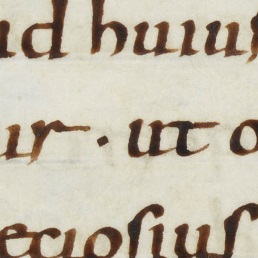 ad huius
ur · ut o
eciosius